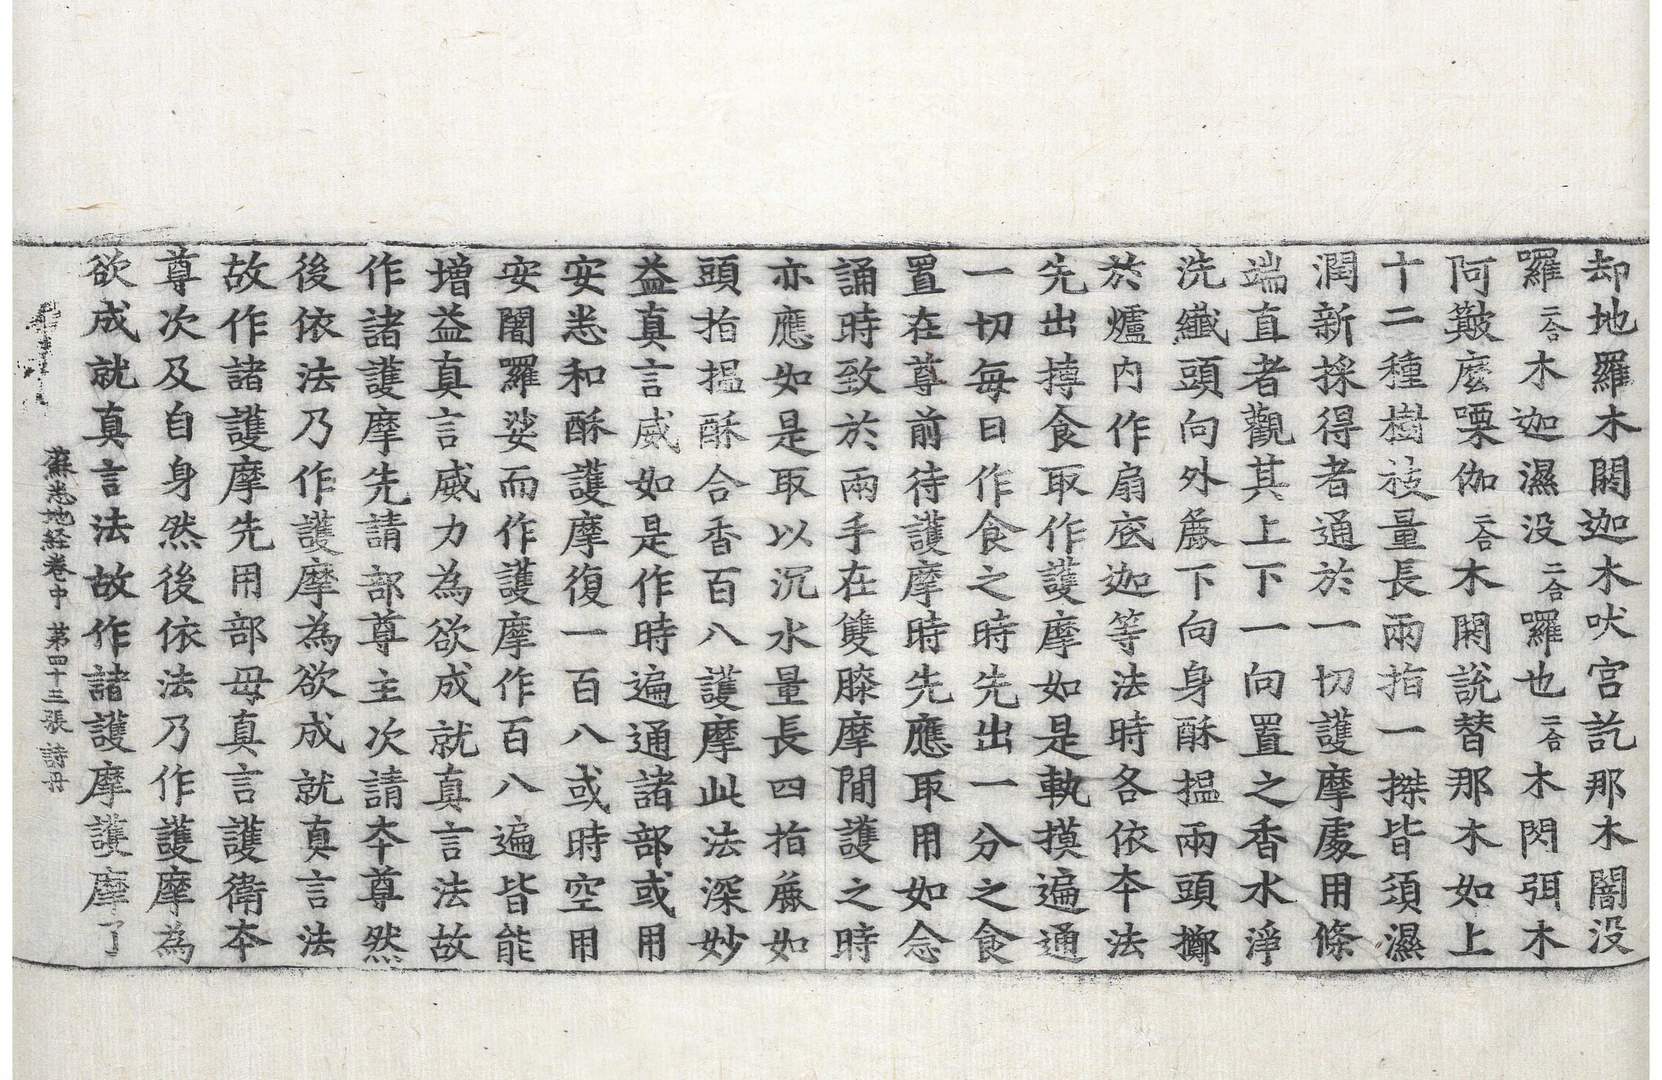 却地羅木閼迦木吠宮訖那木闇没
囉二合木迦濕没二合囉也二合木閃弭木
阿簸麼㗚伽二合木閼説替那木如上
十二種樹枝量長兩指一搩皆須濕
潤新採得者通於一切護摩處用條
端直者觀其上下一向置之香水淨
洗纖頭向外麁下向身酥搵兩頭擲
於爐内作扇底迦等法時各依夲法
先出摶食取作護摩如是執摸遍通
一切每日作食之時先出一分之食
置在尊前待護摩時先應取用如念
誦時致於兩手在雙膝摩間護之時
亦應如是取以沉水量長四指麁如
頭指搵酥合香百八護摩此法深妙
益真言威如是作時遍通諸部或用
安悉和酥護摩復一百八或時空用
安闍羅娑而作護摩作百八遍皆能
增益真言威力為欲成就真言法故
作諸護摩先請部尊主次請夲尊然
後依法乃作護摩為欲成就真言法
故作諸護摩先用部母真言護衛夲
尊次及自身然後依法乃作護摩為
欲成就真言法故作諸護摩護摩了
蘇悉地経卷中 第四十三張 詩冊